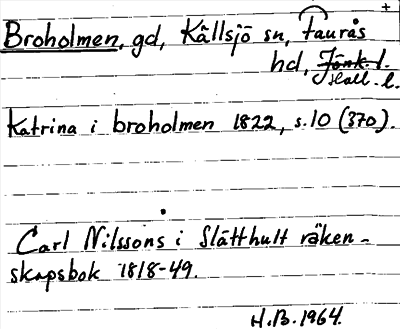 Broholmen, gd, Källsjö sn, Faurås
hd, Jönk. l.
Hall. l.
Katrina i broholmen 1822, s.10 (370).
Carl Nilssons i Slätthult räken-
skapsbok 1818-49.
H.B. 1964.